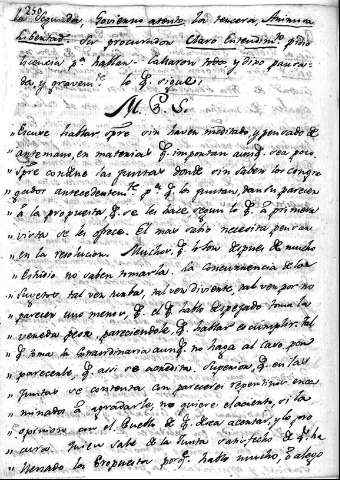 230
la Segunda, Govierno atento, la tercera, Animosa
Libertad. Su procurador Claro Entendim.to pidio
licencia p.a hablar. Callaron todos y dixo pausa-
da, y gravem.te lo q.e sigue:
M. P. S.
" Escuse hablar spre sin haver meditado, y pensado de
" antemano, en materias q.e importan aunq.e sea poco.
" Spre condene las Juntas donde sin saber los congre
" gados antecedentem.te p.a q.e la juntan, dan su parecer
" à la propuesta, q.e se les hace segun lo q.e à primera
" vista se les ofrece. El mas sabio necesita pensar
" en la resolucion. Muchos q.e lo son despues de mucho
" estudio no saben tomarla. La concurrencia de los
" Sugetos tal vez turba, tal vez divierte, tal vez por no
" parecer uno menor, q.e el q.e habló despegado toma la
" vereda peor, pareciendole, q.e hablar es cumplir: tal
" q.e toma la extraordinaria aunq.e no haga al caso, por
" parecerle, q.e assi se acredita. Sugetos, q.e en las
" Juntas se contenta con pareceres repentinos enca
" minados à agradarle, no quiere el acierto, si la
" opinion con el Pueblo de q.e desea acertar, y lo pro
" cura. Quien sale de la Junta satisfecho de q.e ha
" llenado la Propuesta porq.e habló mucho, ò alego